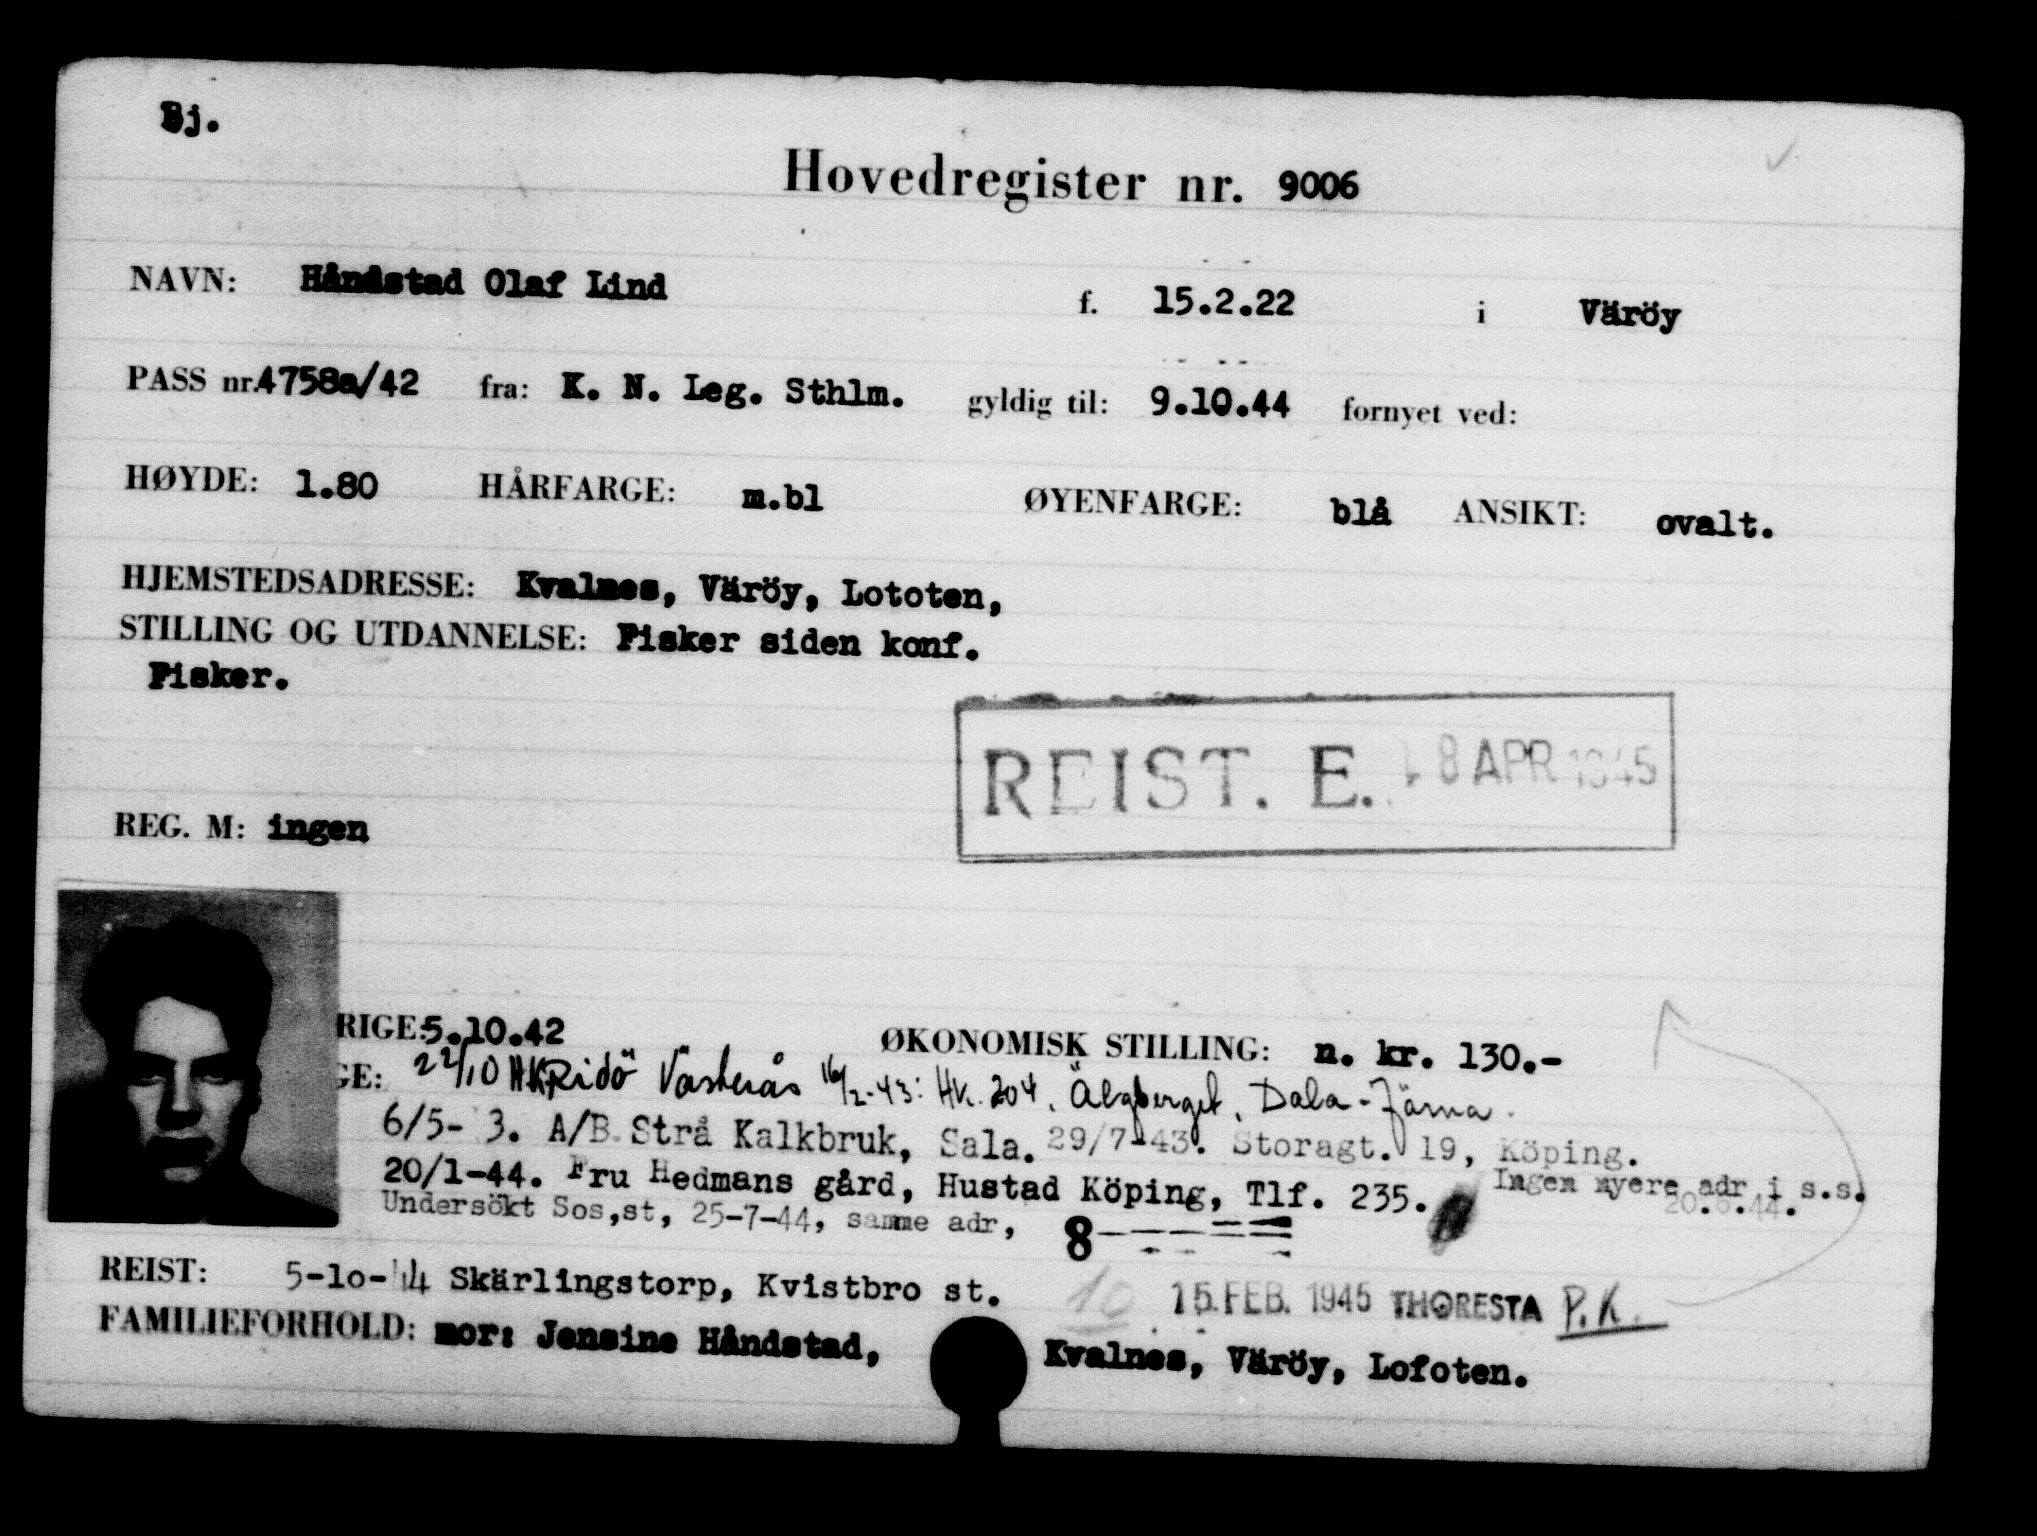 Bj.
Hovedregister nr. 9006
NAVN: Håndstad Olaf Lind f. 15.2.22 i Väröy
PASS nr. 4758a/42 fra: K. N. Leg. Sthlm. gyldig til: 9.10.44 fornyet ved:
HØYDE: 1.80 HÅRFARGE: m.bl ØYENFARGE: blå ANSIKT: ovalt.
HJEMSTEDSADRESSE: Kvalnes, Väröy, Lototen,
STILLING OG UTDANNELSE: Fisker siden konf.
Fisker.
REIST. E. 18 APR 1945
REG. M: ingen
RIGE: 5.10.42 ØKONOMISK STILLING: n. kr. 130.-
GE: 22/10 HK Ridö Västerås 16/2-43: Hk. 204, Älgberget, Dala-Järna.
6/5- 3. A/B Strå Kalkbruk, Sala. 29/7-43. Storagt. 19, Köping.
20/1-44. Fru Hedmans gård, Hustad Köping, Tlf. 235. Ingen nyere adr i s.s.
Undersökt Sos,st, 25-7-44, samme adr, 8 20.6.44.
REIST: 5-10-44 Skärlingstorp, Kvistbro st. 10 15.FEB. 1945 THORESTA P.K.
FAMILIEFORHOLD: mor: Jensine Håndstad, Kvalnes, Väröy, Lofoten.